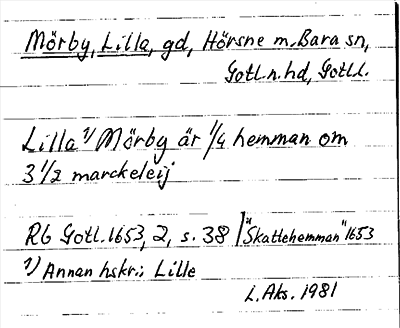 Mörby, Lilla, gd, Hörsne m. Bara sn,
Gotl. n. hd, Gotl. l.
Lilla 1) Mörby är 1/4 hemman om
3 1/2 marckeleij
RG Gotl. 1653, 2, s. 38 ] "Skattehemman" 1653
1) Annan hskr.: Lille
L. Aks. 1981